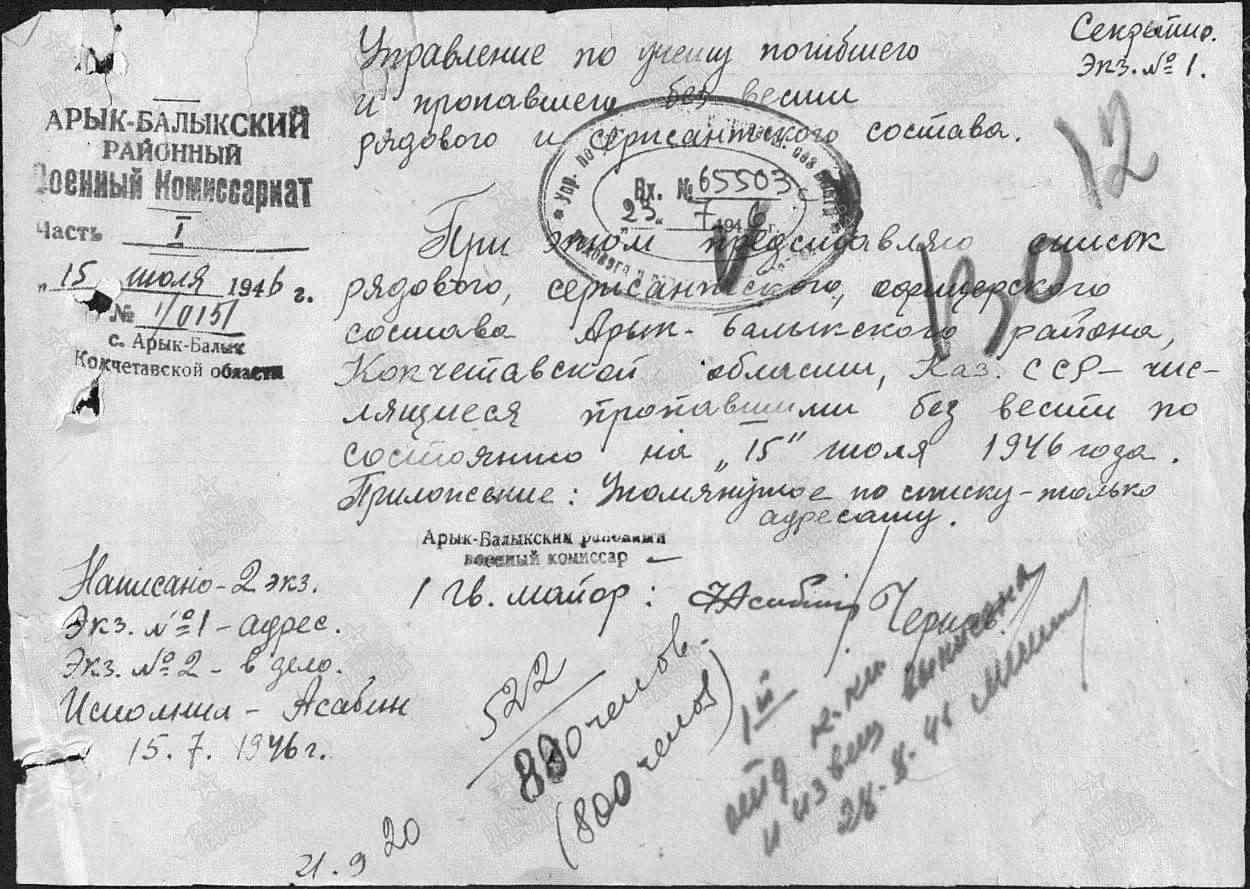 Секретно.
Экз. № 1.
Управление по учету погибшего
и пропавшего без вести
рядового и сержантского состава.
АРЫК-БАЛЫКСКИЙ
РАЙОННЫЙ
Военный Комиссариат
Часть I
„15 июля 1946 г.
№ 1/0151
с. Арык-Балык
Кокчетавской области
Вх. № 65503с
„23" 7 1946 г.
12
130
При этом представляю список
рядового, сержантского, офицерского
состава Арык-Балыкского района,
Кокчетавской области, Каз. ССР – чис-
лящиеся пропавшими без вести по
состоянию на „15" июля 1946 года.
Приложение: Упомянутое по списку – только
адресату.
Арык-Балыкский районный
военный комиссар
Гв. майор:
Написано – 2 экз.
Экз. № 1 – адрес.
Экз. № 2 – в дело.
Исполнил – Асавин
15.7.1946 г.
522
880 челов.
(800 челов)
1й
отд
и извещ
21.9
20